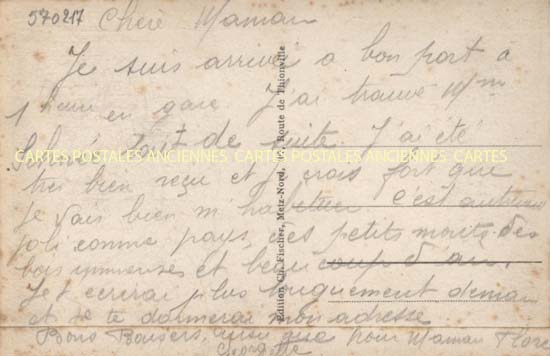 570217
Chère Maman
Je suis arrivé à bon port à
1 heure en gare J'ai trouvé Mme
tout de suite. J'ai été
CARTES POSTALES ANCIENNES CARTES POSTALES ANCIENNES CARTES
très bien reçu et je crois fort que
je vais bien m'habituer c'est
joli comme pays, des petits monts des
bois immenses et beaucoup d'air.
Je t'écrirai plus longuement demain
et je te donnerai mon adresse
Bons Baisers, ainsi que pour Maman
Édition Ch. Fischer, Metz-Nord, Route de Thionville